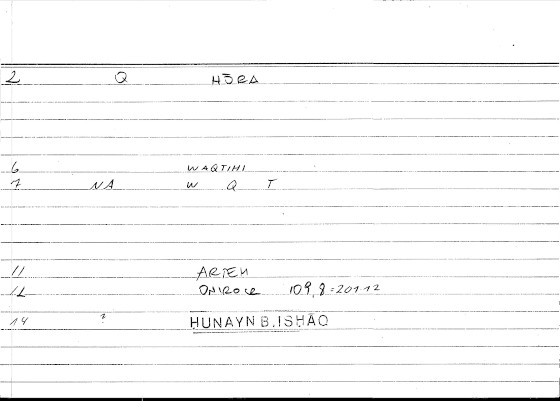 2 Q HŌRA
6 WAQTIHI
7 NA W Q T
11 ARTEM
12 ONIROCR 109,8=201,12
14 ? HUNAYN B. ISHĀQ